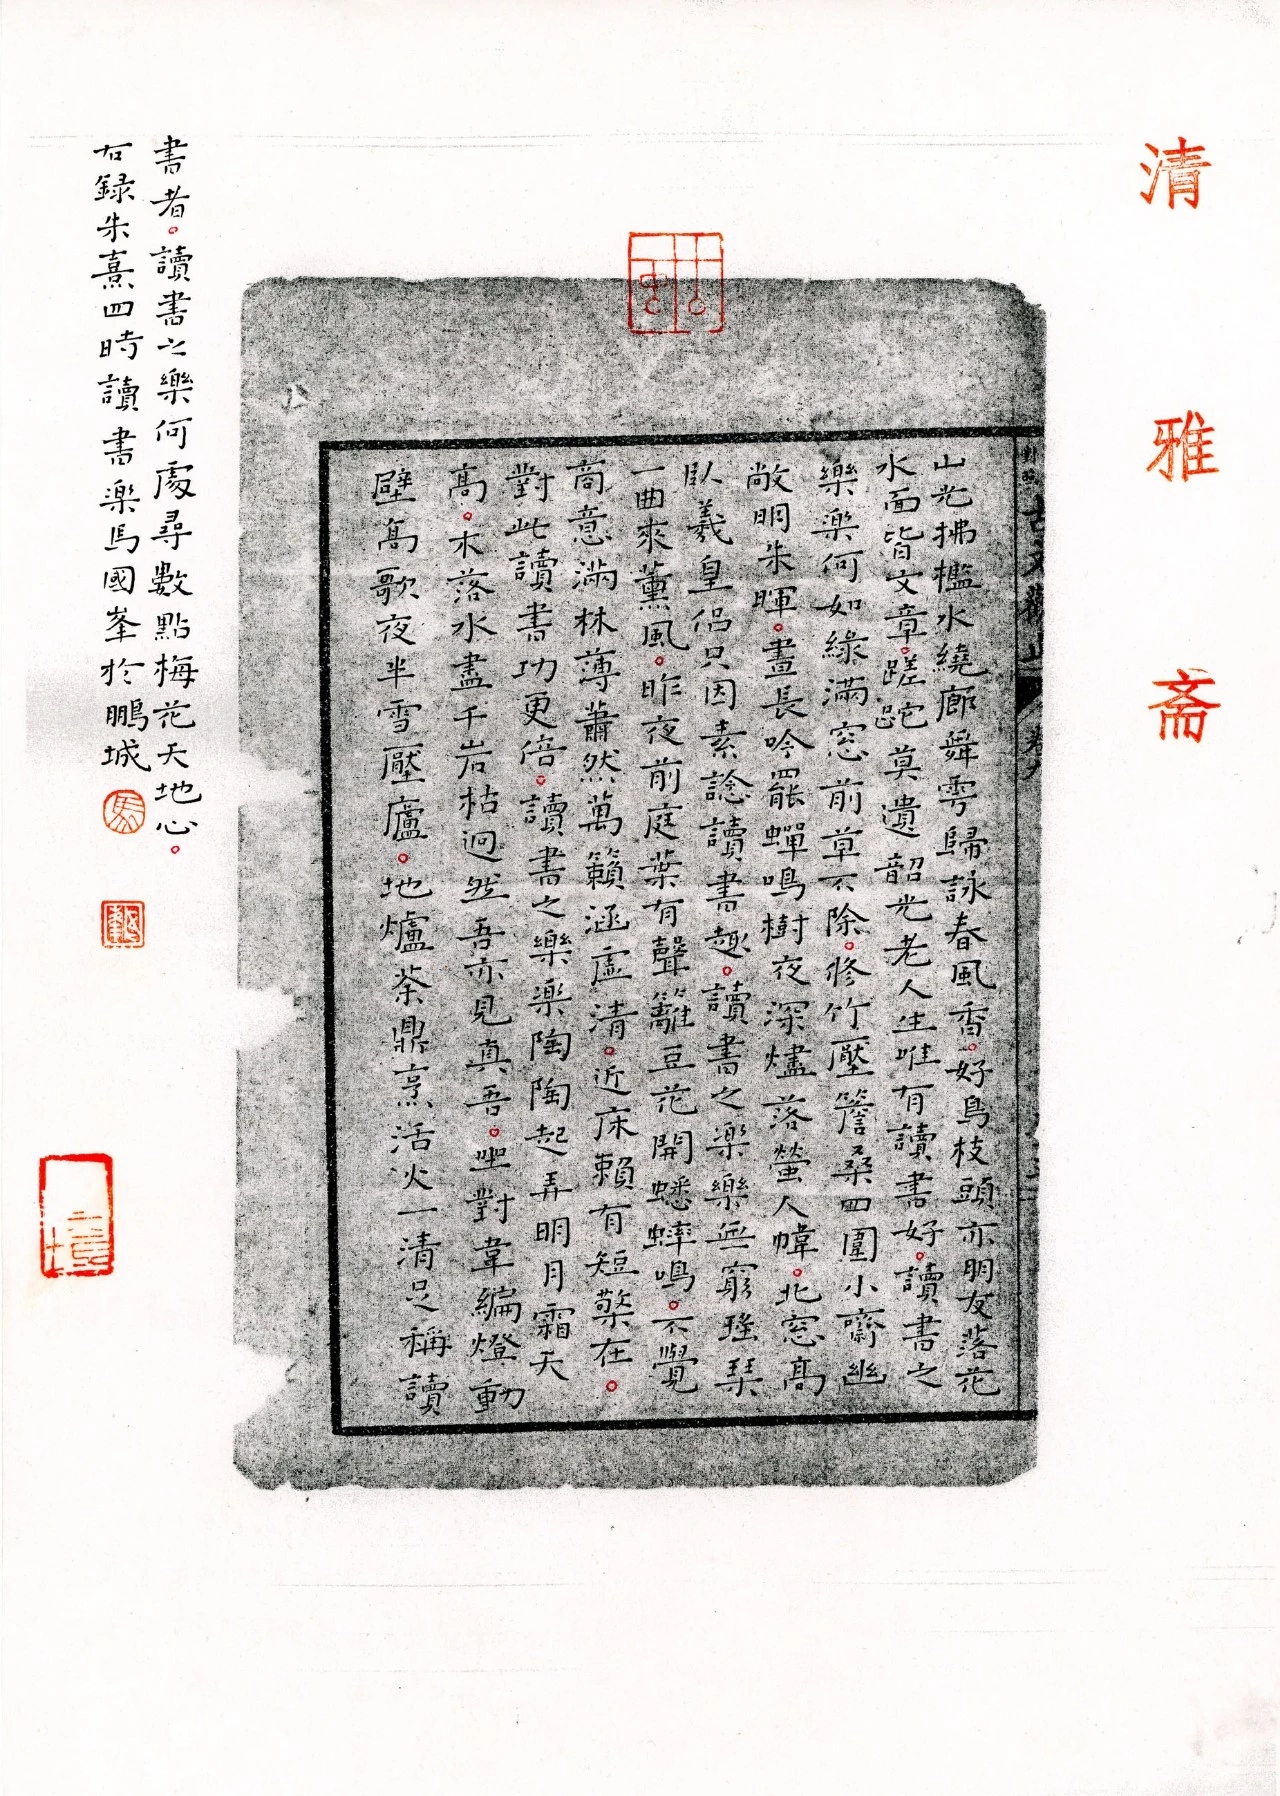 清雅斋
古文觀止
山光拂檻水繞廊舞雩歸詠春風香。好鳥枝頭亦朋友落花
水面皆文章。蹉跎莫遺韶光老人生唯有讀書好。讀書之
樂樂何如綠滿窓前草不除。修竹壓簷桑四圍小齋幽
敞明朱暉。晝長吟罷蟬鳴樹夜深燼落螢人幃。北窓高
臥羲皇侣只因素諗讀書趣。讀書之樂樂無窮瑤琴
一曲來薰風。昨夜前庭葉有聲籬豆花開蟋蟀鳴。不覺
商意滿林薄蕭然萬籟涵虛清。近床賴有短檠在。
對此讀書功更倍。讀書之樂樂陶陶起弄明月霜天
高。木落水盡千岩枯迥然吾亦見真吾。坐對韋編燈動
壁高歌夜半雪壓廬。地爐茶鼎烹活火一清足稱讀
書者。讀書之樂何處尋數點梅花天地心。
右録朱熹四時讀書樂馬國峯於鵬城
馬